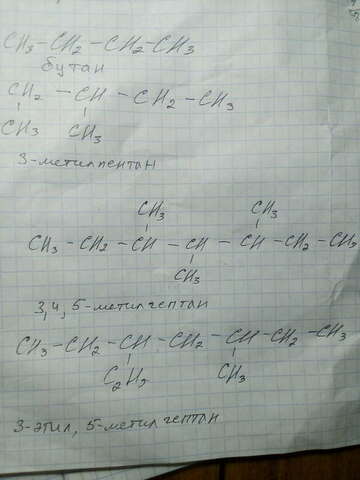 CH₃ – CH₂ – CH₂ – CH₃
бутан
CH₂ – CH – CH₂ – CH₃
CH₃ CH₃
3-метилпентан
CH₃ CH₃
CH₃ – CH₂ – CH – CH – CH – CH₂ – CH₃
CH₃
3,4,5-метилгептан
CH₃ – CH₂ – CH – CH₂ – CH – CH₂ – CH₃
C₂H₅ CH₃
3-этил, 5-метилгептан